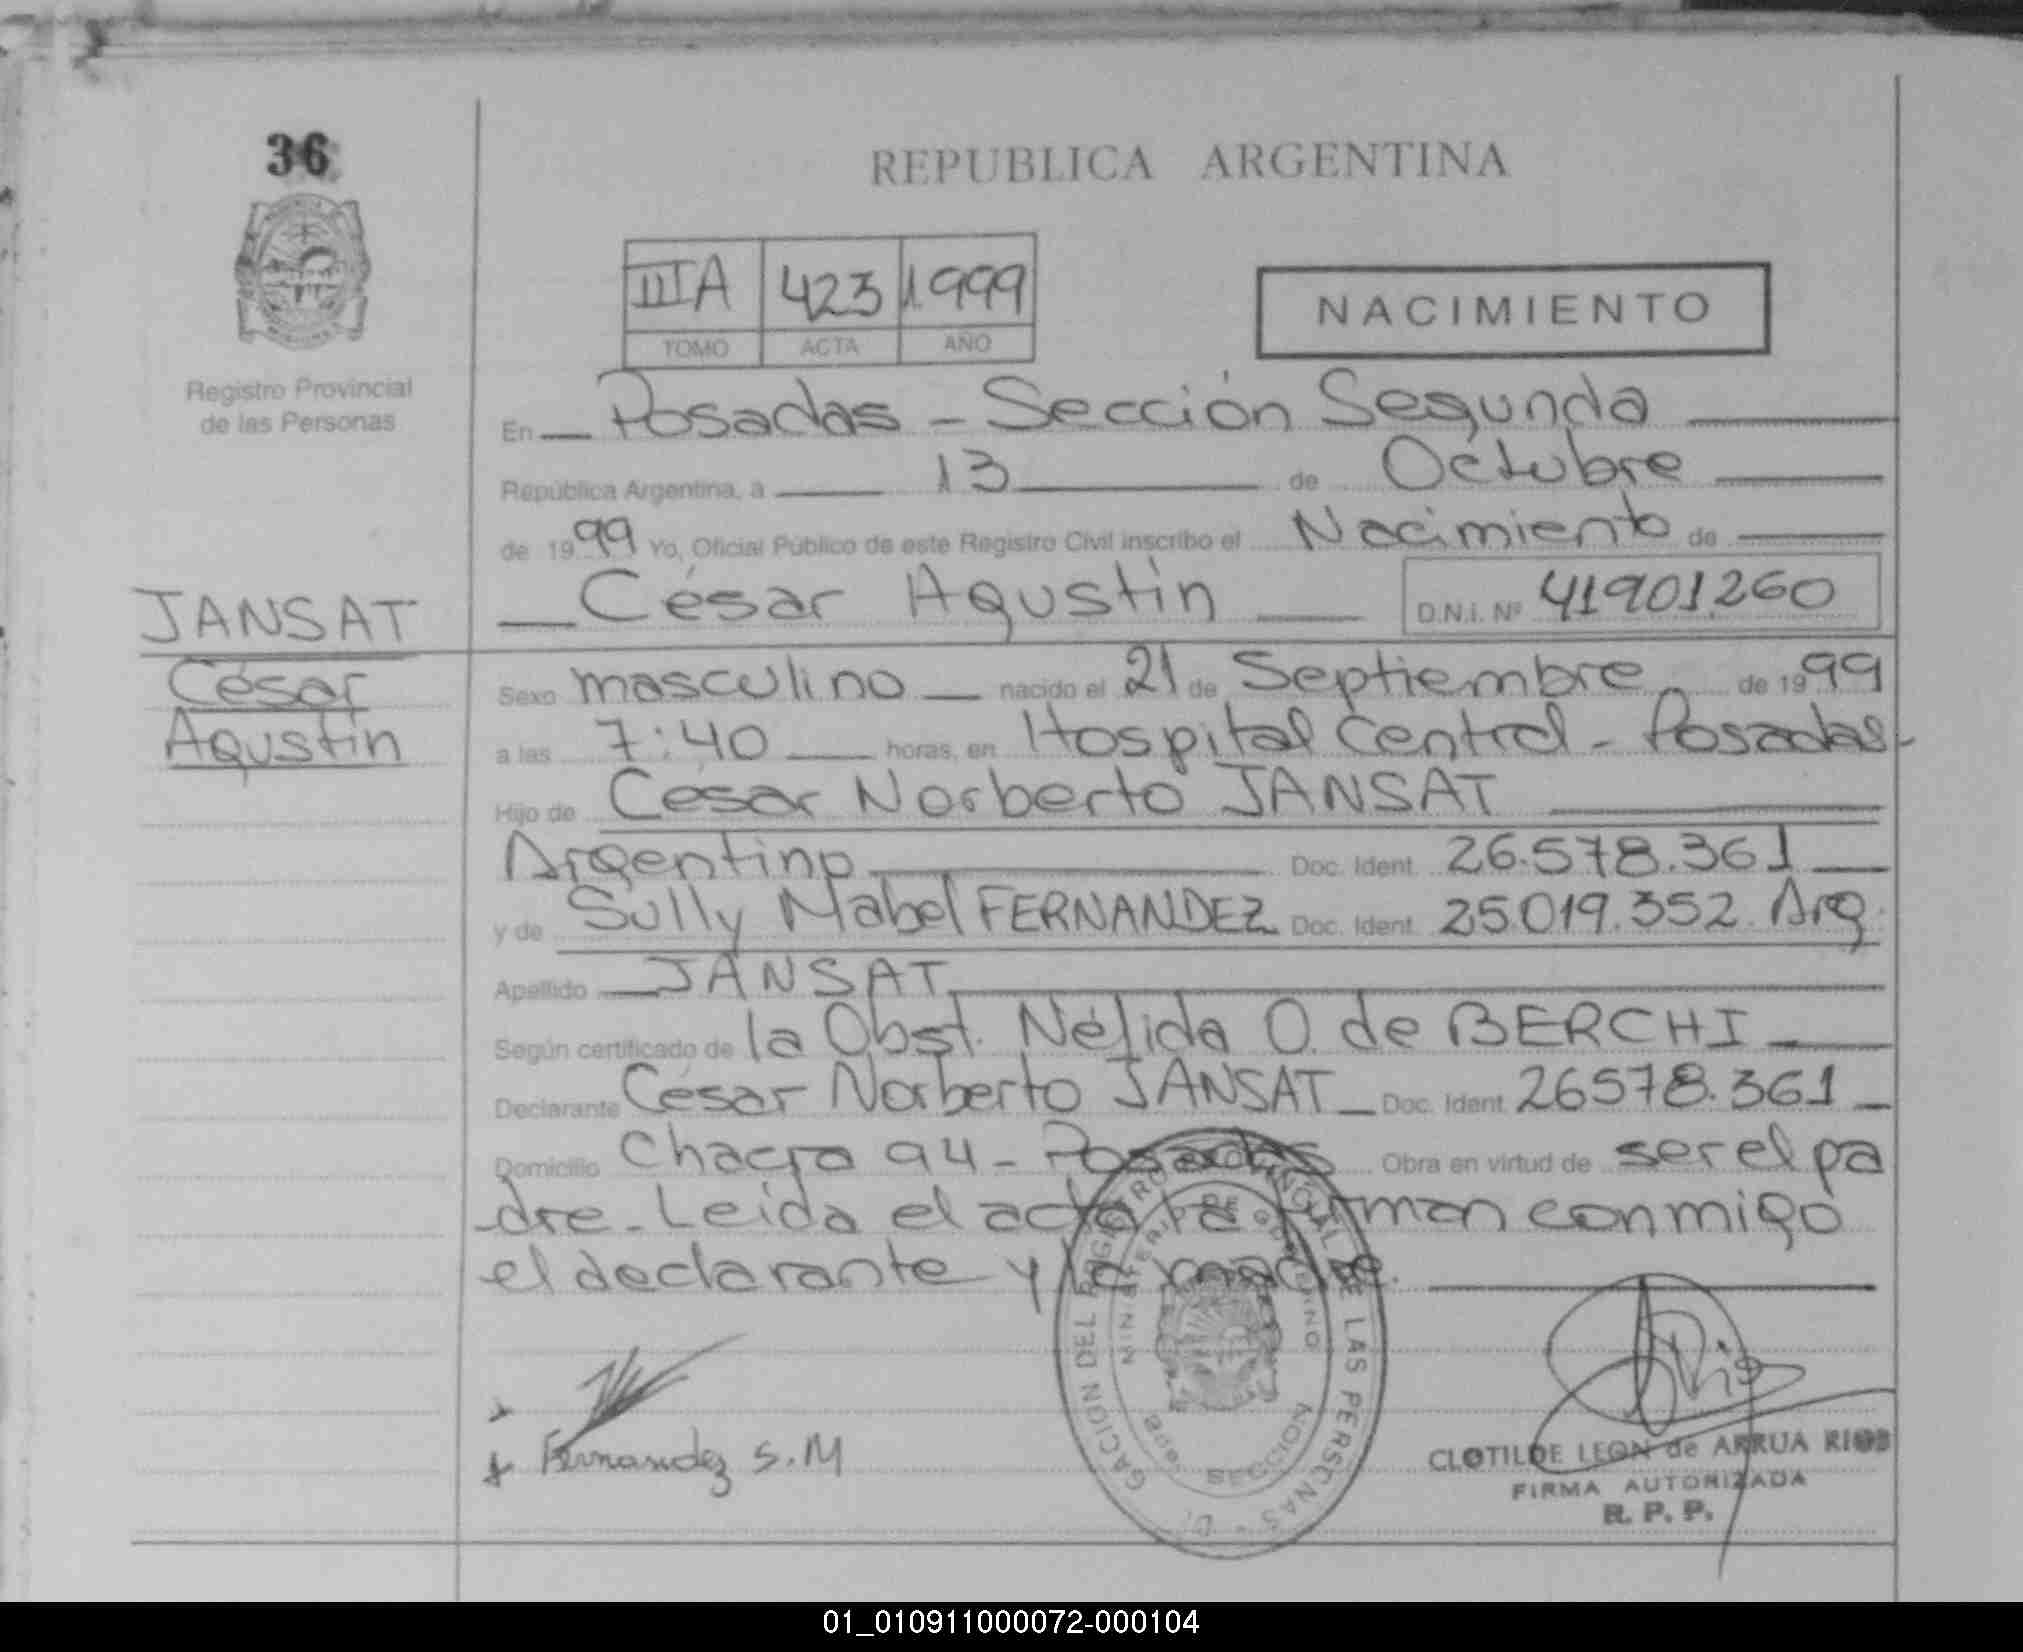 36
REPUBLICA ARGENTINA
IIIA 423 1999
TOMO ACTA AÑO
NACIMIENTO
Registro Provincial
de las Personas
En Posadas - Sección Segunda
República Argentina, a 13 de Octubre
de 1999 Yo, Oficial Público de este Registro Civil inscribo el Nacimiento de
César Agustín D.N.i. Nº 41901.260
JANSAT
César
Agustín
Sexo masculino nacido el 21 de Septiembre de 1999
a las 7:40 horas, en Hospital Central - Posadas-
Hijo de César Norberto JANSAT
Argentino Doc. Ident. 26.578.361
y de Sully Mabel FERNANDEZ Doc. Ident. 25.019.352 Arg.
Apellido JANSAT
Según certificado de la Obst. Nélida O. de BERCHI
Declarante César Norberto JANSAT Doc. Ident. 26578.361
Domicilio Chacra 94 - Posadas Obra en virtud de ser el pa
dre. Leída el acta la firman conmigo
el declarante y la madre.
Fernandez S.M
GACION DEL REGISTRO PROVINCIAL DE LAS PERSONAS
MINISTERIO DE GOBIERNO
SECCION
CLOTILDE LEON de ARRUA RIOS
FIRMA AUTORIZADA
R. P. P.
01_010911000072-000104